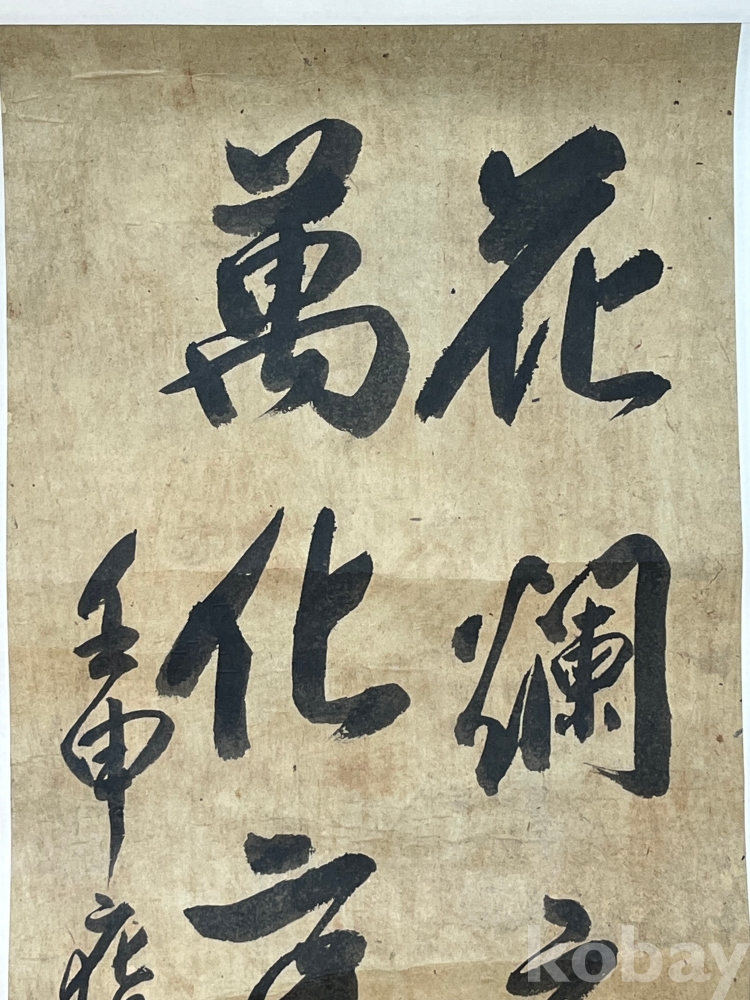 花爛
萬化
壬申
kobay